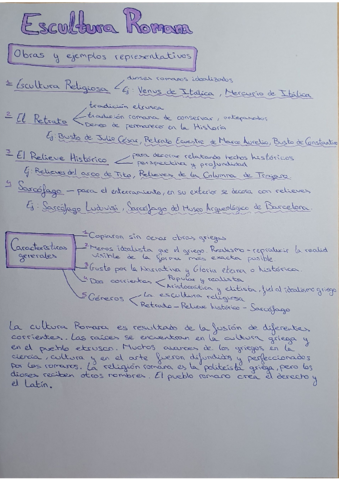 Escultura Romana
Obras y ejemplos representativos
Escultura Religiosa dioses romanos idealizados
Ej: Venus de Italica, Mercurio de Itálica
2) El Retrato tradición etrusca
tradición romana de conservar
deseo de permanecer en la Historia
Ej: Busto de Julio César, Retrato Ecuestre de Marco Aurelio, Busto de Constantino
3) El Relieve Histórico para decorar relatando hechos históricos
perspectiva y profundidad
Ej: Relieves del arco de Tito, Relieves de la Columna de Trajano
Sarcófago - para el enterramiento, en su exterior se decora con relieves
Ej: Sarcófago Ludovisi, Sarcófago del Museo Arqueológico de Barcelona
Características generales
Copiaron sin cesar obras griegas
Menos idealista que el griego. Realismo - reproducir la realidad
visible de la forma más exacta posible
Gusto por la narrativa y histórica
Dos corrientes Popular y realista
Aristocrática y elitista, fiel al idealismo griego
Géneros La escultura religiosa
Retrato - Relieve histórico - Sarcófago
La cultura Romana es resultado de la fusión de diferentes
corrientes. Las raíces se encuentran en la cultura griega y
en el pueblo etrusco. Muchos avances de los griegos en la
ciencia, cultura y en el arte fueron difundidos y perfeccionados
por los romanos. La religión romana es la politeista griega, pero los
dioses reciben otros nombres. El pueblo romano crea el derecho y
el Latín.